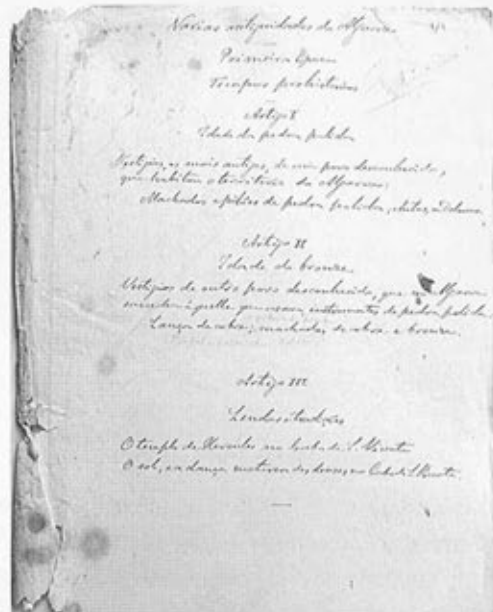 Varias antiguidades do Algarve
Primeira Epoca
Tempos prehistoricos
Artigo I
Idade da pedra polida
Vestigios, os mais antigos, de um povo desconhecido,
que habitou o territorio do Algarve:
Machados e de pedra polida,
Artigo II
Idade do bronze
Vestigios de outro povo desconhecido, que no Algarve
áquelle que usava instrumentos de pedra polida
Lança de cobre; machados de cobre e bronze.
Artigo III
Lendas e tradições
O templo de Hercules no Cabo de S. Vicente
O sol, e a dança nocturna dos deuses, no Cabo de S. Vicente.